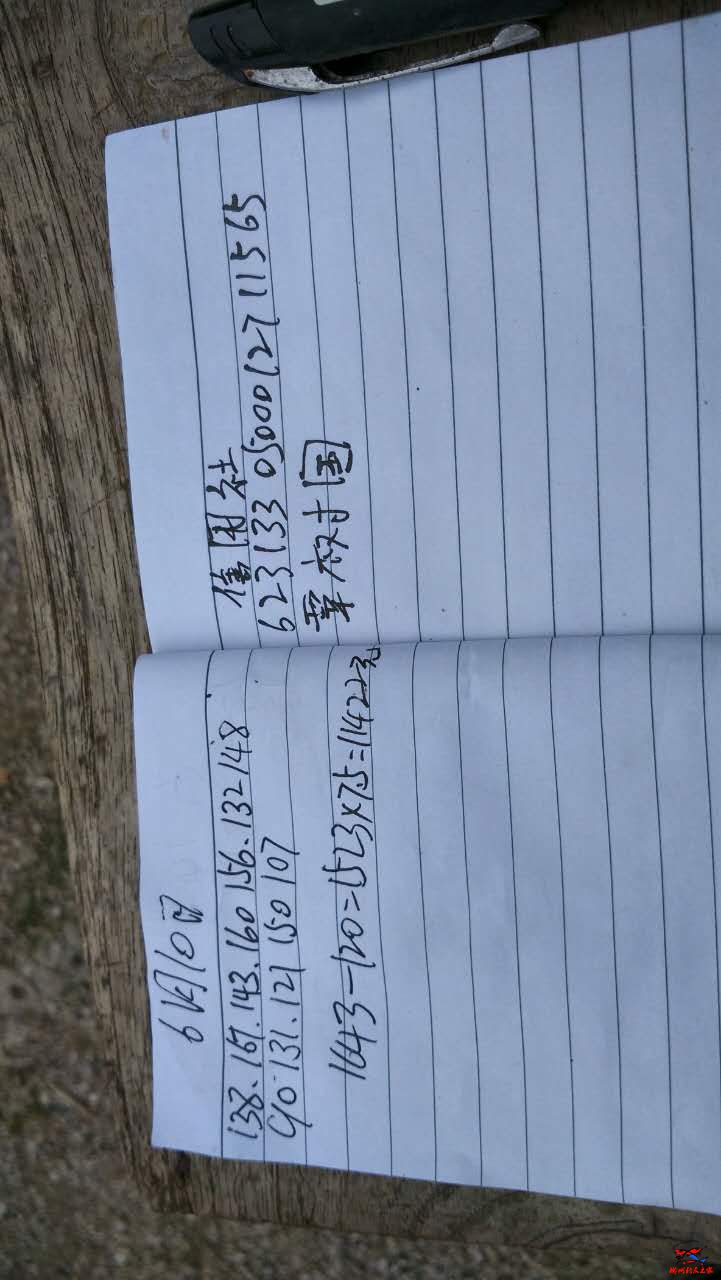 6月10日
138.167.143.160 156.132 148
90.131.121 150 107
1643-120=1523×75=11422元
信用社
623133 05000127 11565
覃树国
柳州钓友之家